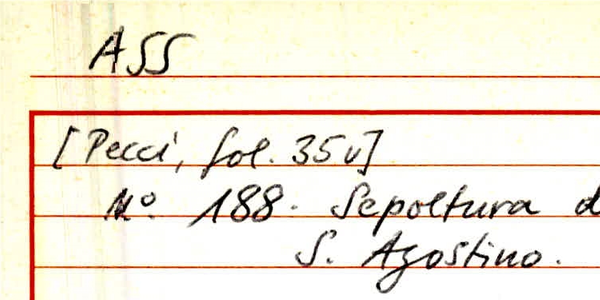 ASS
[Pecci, fol. 35v]
N° 188. Sepoltura d
S. Agostino.